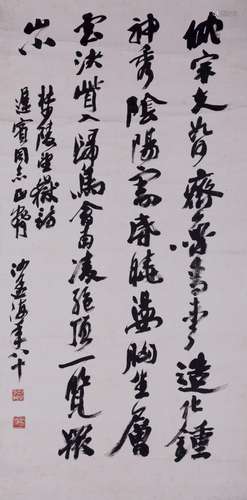 岱宗夫如何齊魯青未了造化鍾
神秀陰陽割昏曉盪胸生層
雲決眥入歸鳥會當凌絕頂一覽眾
山小
杜陵望嶽詩
賓同志正
沙孟海年八十